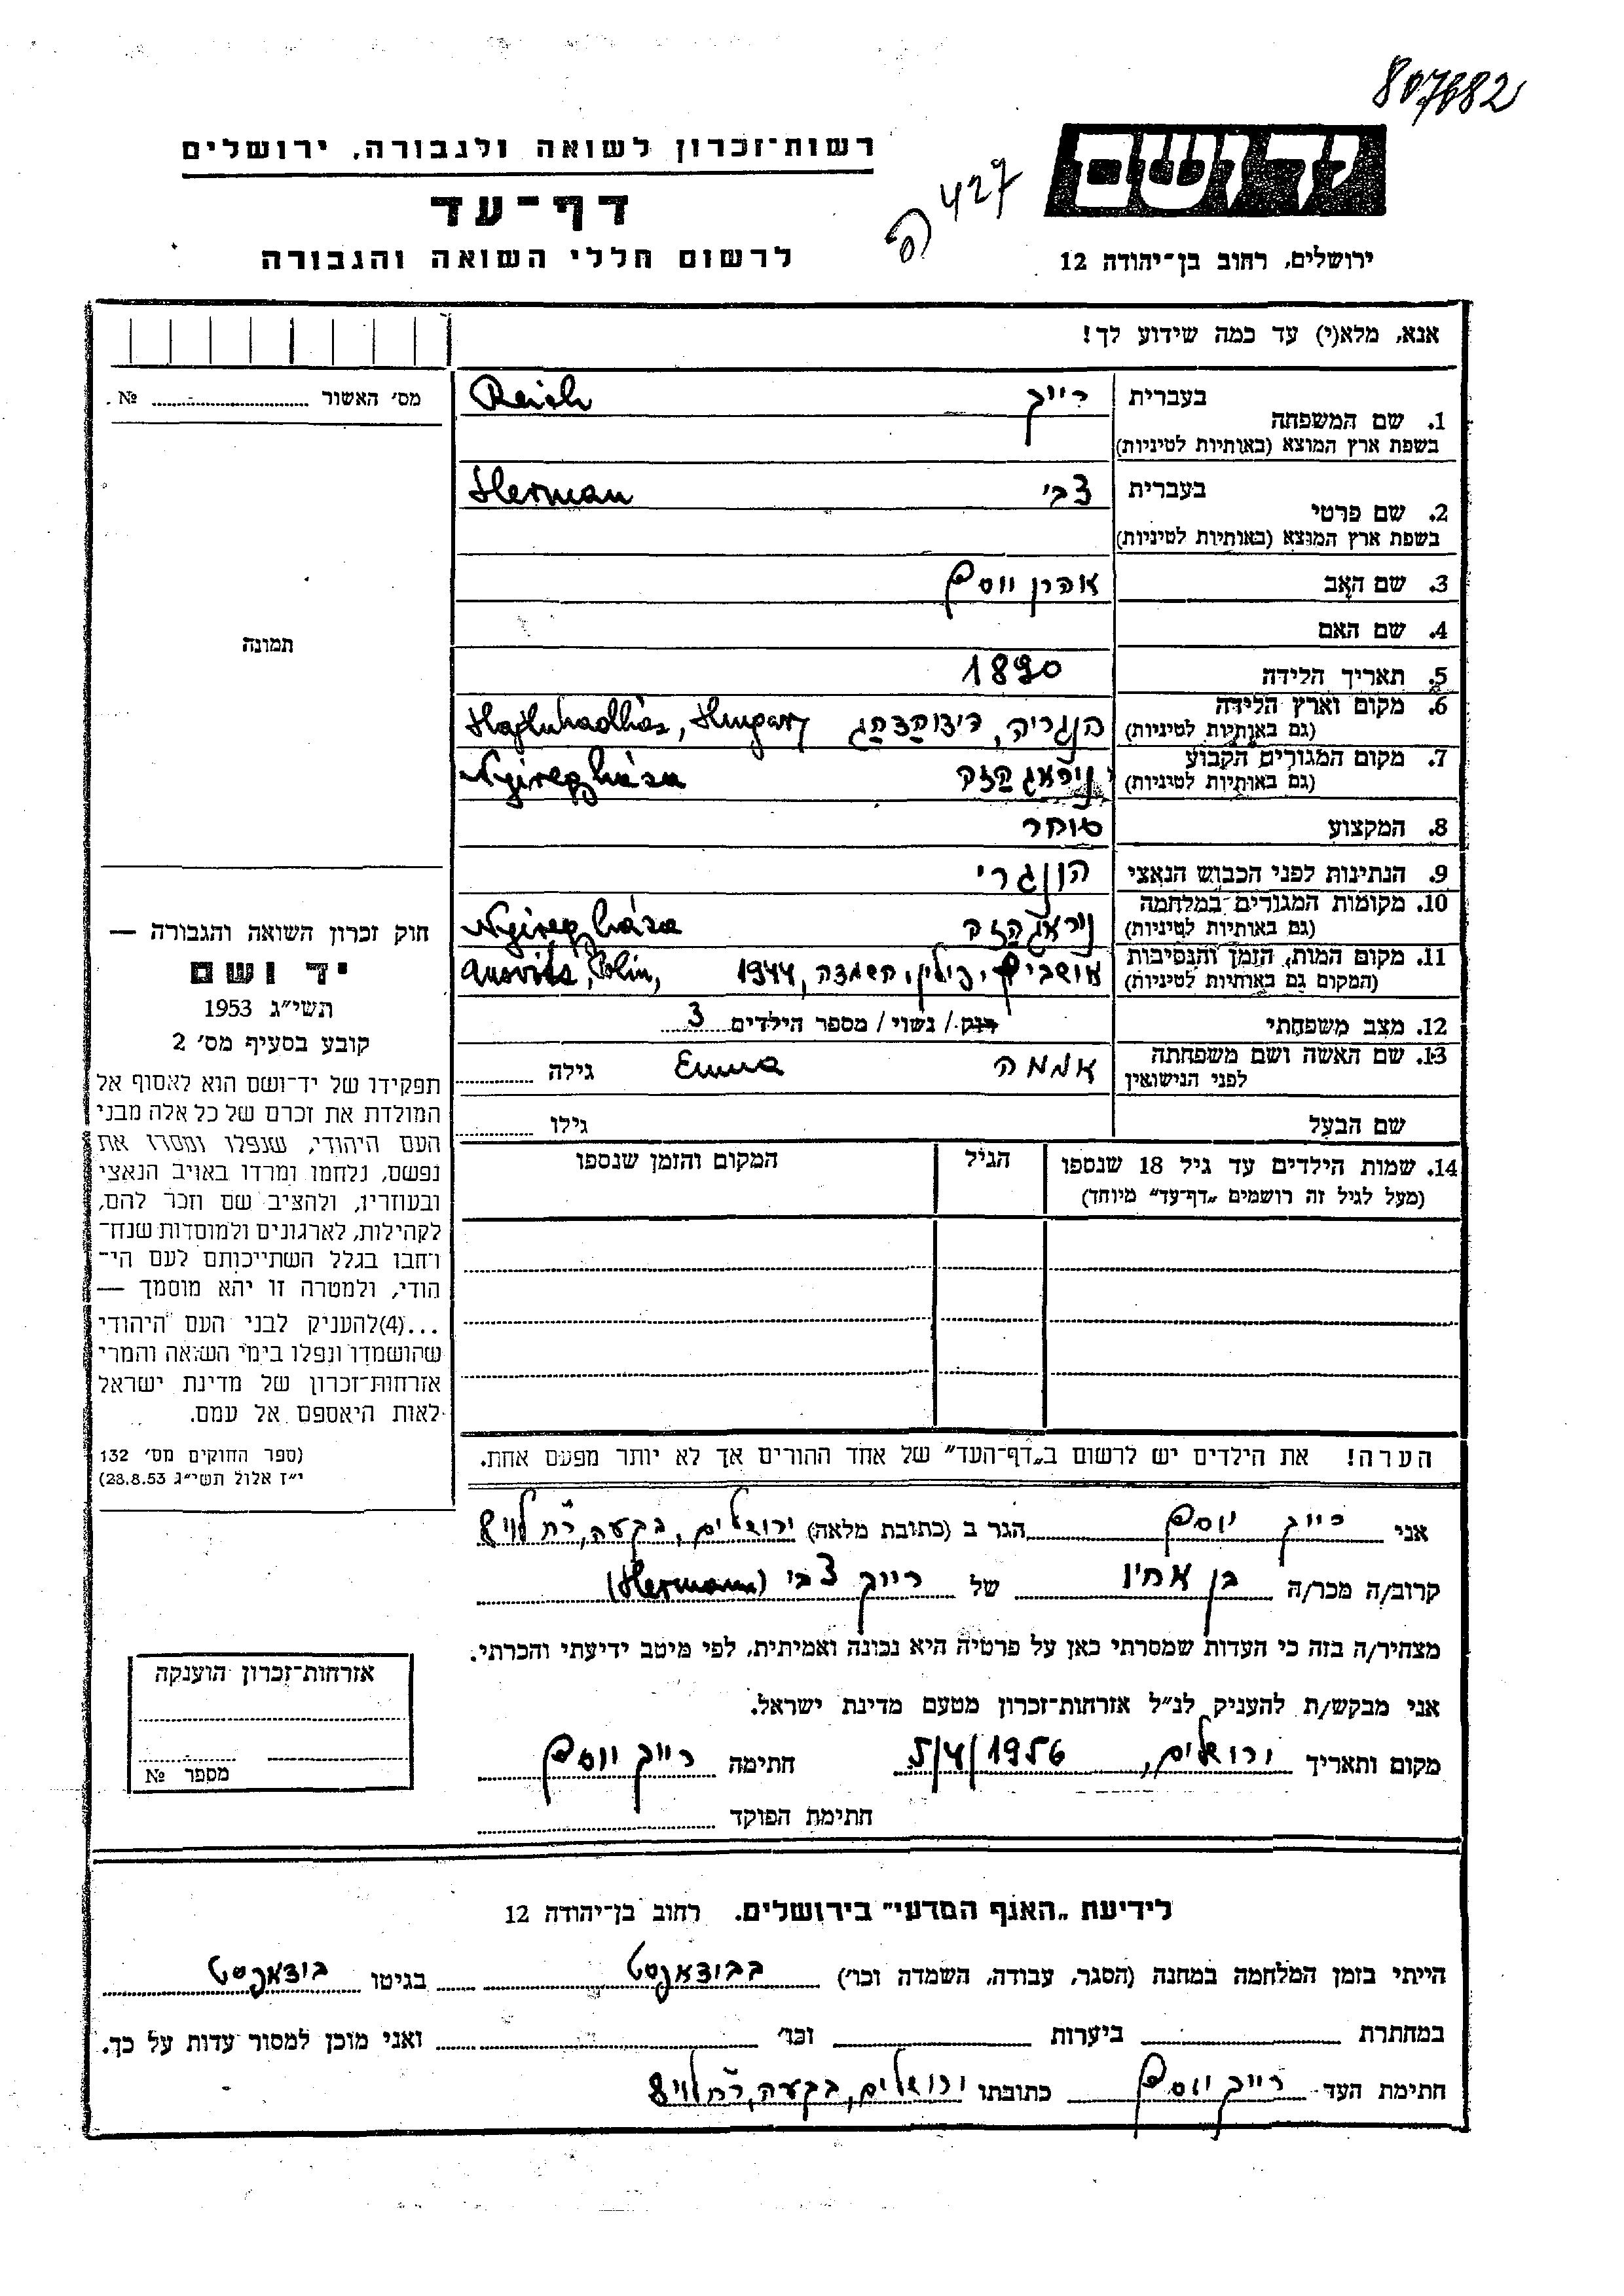 807682
יד ושם
427
רשות־זכרון לשואה ולגבורה, ירושלים
דף־עד
לרשום חללי השואה והגבורה
ירושלים, רחוב בן־יהודה 12
אנא, מלא(י) עד כמה שידוע לך!
1. שם המשפחה
בעברית רייך Reich
בשפת ארץ המוצא (באותיות לטיניות)
2. שם פרטי
בעברית צבי Herman
בשפת ארץ המוצא (באותיות לטיניות)
3. שם האב אהרן יוסף
4. שם האם
5. תאריך הלידה 1890
6. מקום וארץ הלידה הנגריה, Hajduhadház, Hungary
(גם באותיות לטיניות)
7. מקום המגורים הקבוע ניראג הזה Nyiregyháza
(גם באותיות לטיניות)
8. המקצוע סוחר
9. הנתינות לפני הכבוש הנאצי הונגרי
10. מקומות המגורים במלחמה ניראג הזה Nyiregyháza
(גם באותיות לטיניות)
11. מקום המות, הזמן והנסיבות אושביץ, פולין, השמדה, 1944 Ausvits, Polin,
(המקום גם באותיות לטיניות)
12. מצב משפחתי רוק / נשוי / מספר הילדים 3
13. שם האשה ושם משפחתה אממה Emma גילה
לפני הנישואין
שם הבעל גילו
14. שמות הילדים עד גיל 18 שנספו הגיל המקום והזמן שנספו
(מעל לגיל זה רושמים „דף־עד” מיוחד)
הערה! את הילדים יש לרשום ב„דף־העד” של אחד ההורים אך לא יותר מפעם אחת.
מס׳ האשור № .
תמונה
חוק זכרון השואה והגבורה —
יד ושם
תשי״ג 1953
קובע בסעיף מס׳ 2
תפקידו של יד־ושם הוא לאסוף אל
המולדת את זכרם של כל אלה מבני
העם היהודי, שנפלו ומסרו את
נפשם, נלחמו ומרדו באויב הנאצי
ובעוזריו, ולהציב שם וזכר להם,
לקהילות, לארגונים ולמוסדות שנח־
רחבו בגלל השתייכותם לעם הי־
הודי, ולמטרה זו יהא מוסמך —
...(4)להעניק לבני העם היהודי
שהושמדו ונפלו בימי השואה והמרי
אזרחות־זכרון של מדינת ישראל
לאות היאספם אל עמם.
(ספר החוקים מס׳ 132
י״ז אלול תשי״ג 28.8.53)
אני רייך יוסף הגר ב (כתובת מלאה) ירושלים, בקעה, רח׳ לוי 8
קרוב/ה מכר/ה בן אחיו של רייך צבי (Hermann)
מצהיר/ה בזה כי העדות שמסרתי כאן על פרטיה היא נכונה ואמיתית, לפי מיטב ידיעתי והכרתי.
אני מבקש/ת להעניק לנ״ל אזרחות־זכרון מטעם מדינת ישראל.
מקום ותאריך ירושלים, 5/4/1956 חתימה רייך יוסף
חתימת הפוקד
אזרחות־זכרון הוענקה
מספר №
לידיעת „האגף המדעי” בירושלים. רחוב בן־יהודה 12
הייתי בזמן המלחמה במחנה (הסגר, עבודה, השמדה וכו׳) בבודאפסט בגיטו בודאפסט
במחתרת ביערות וכו׳ ואני מוכן למסור עדות על כך.
חתימת העד רייך יוסף כתובתו ירושלים, בקעה, רח׳ לוי 8